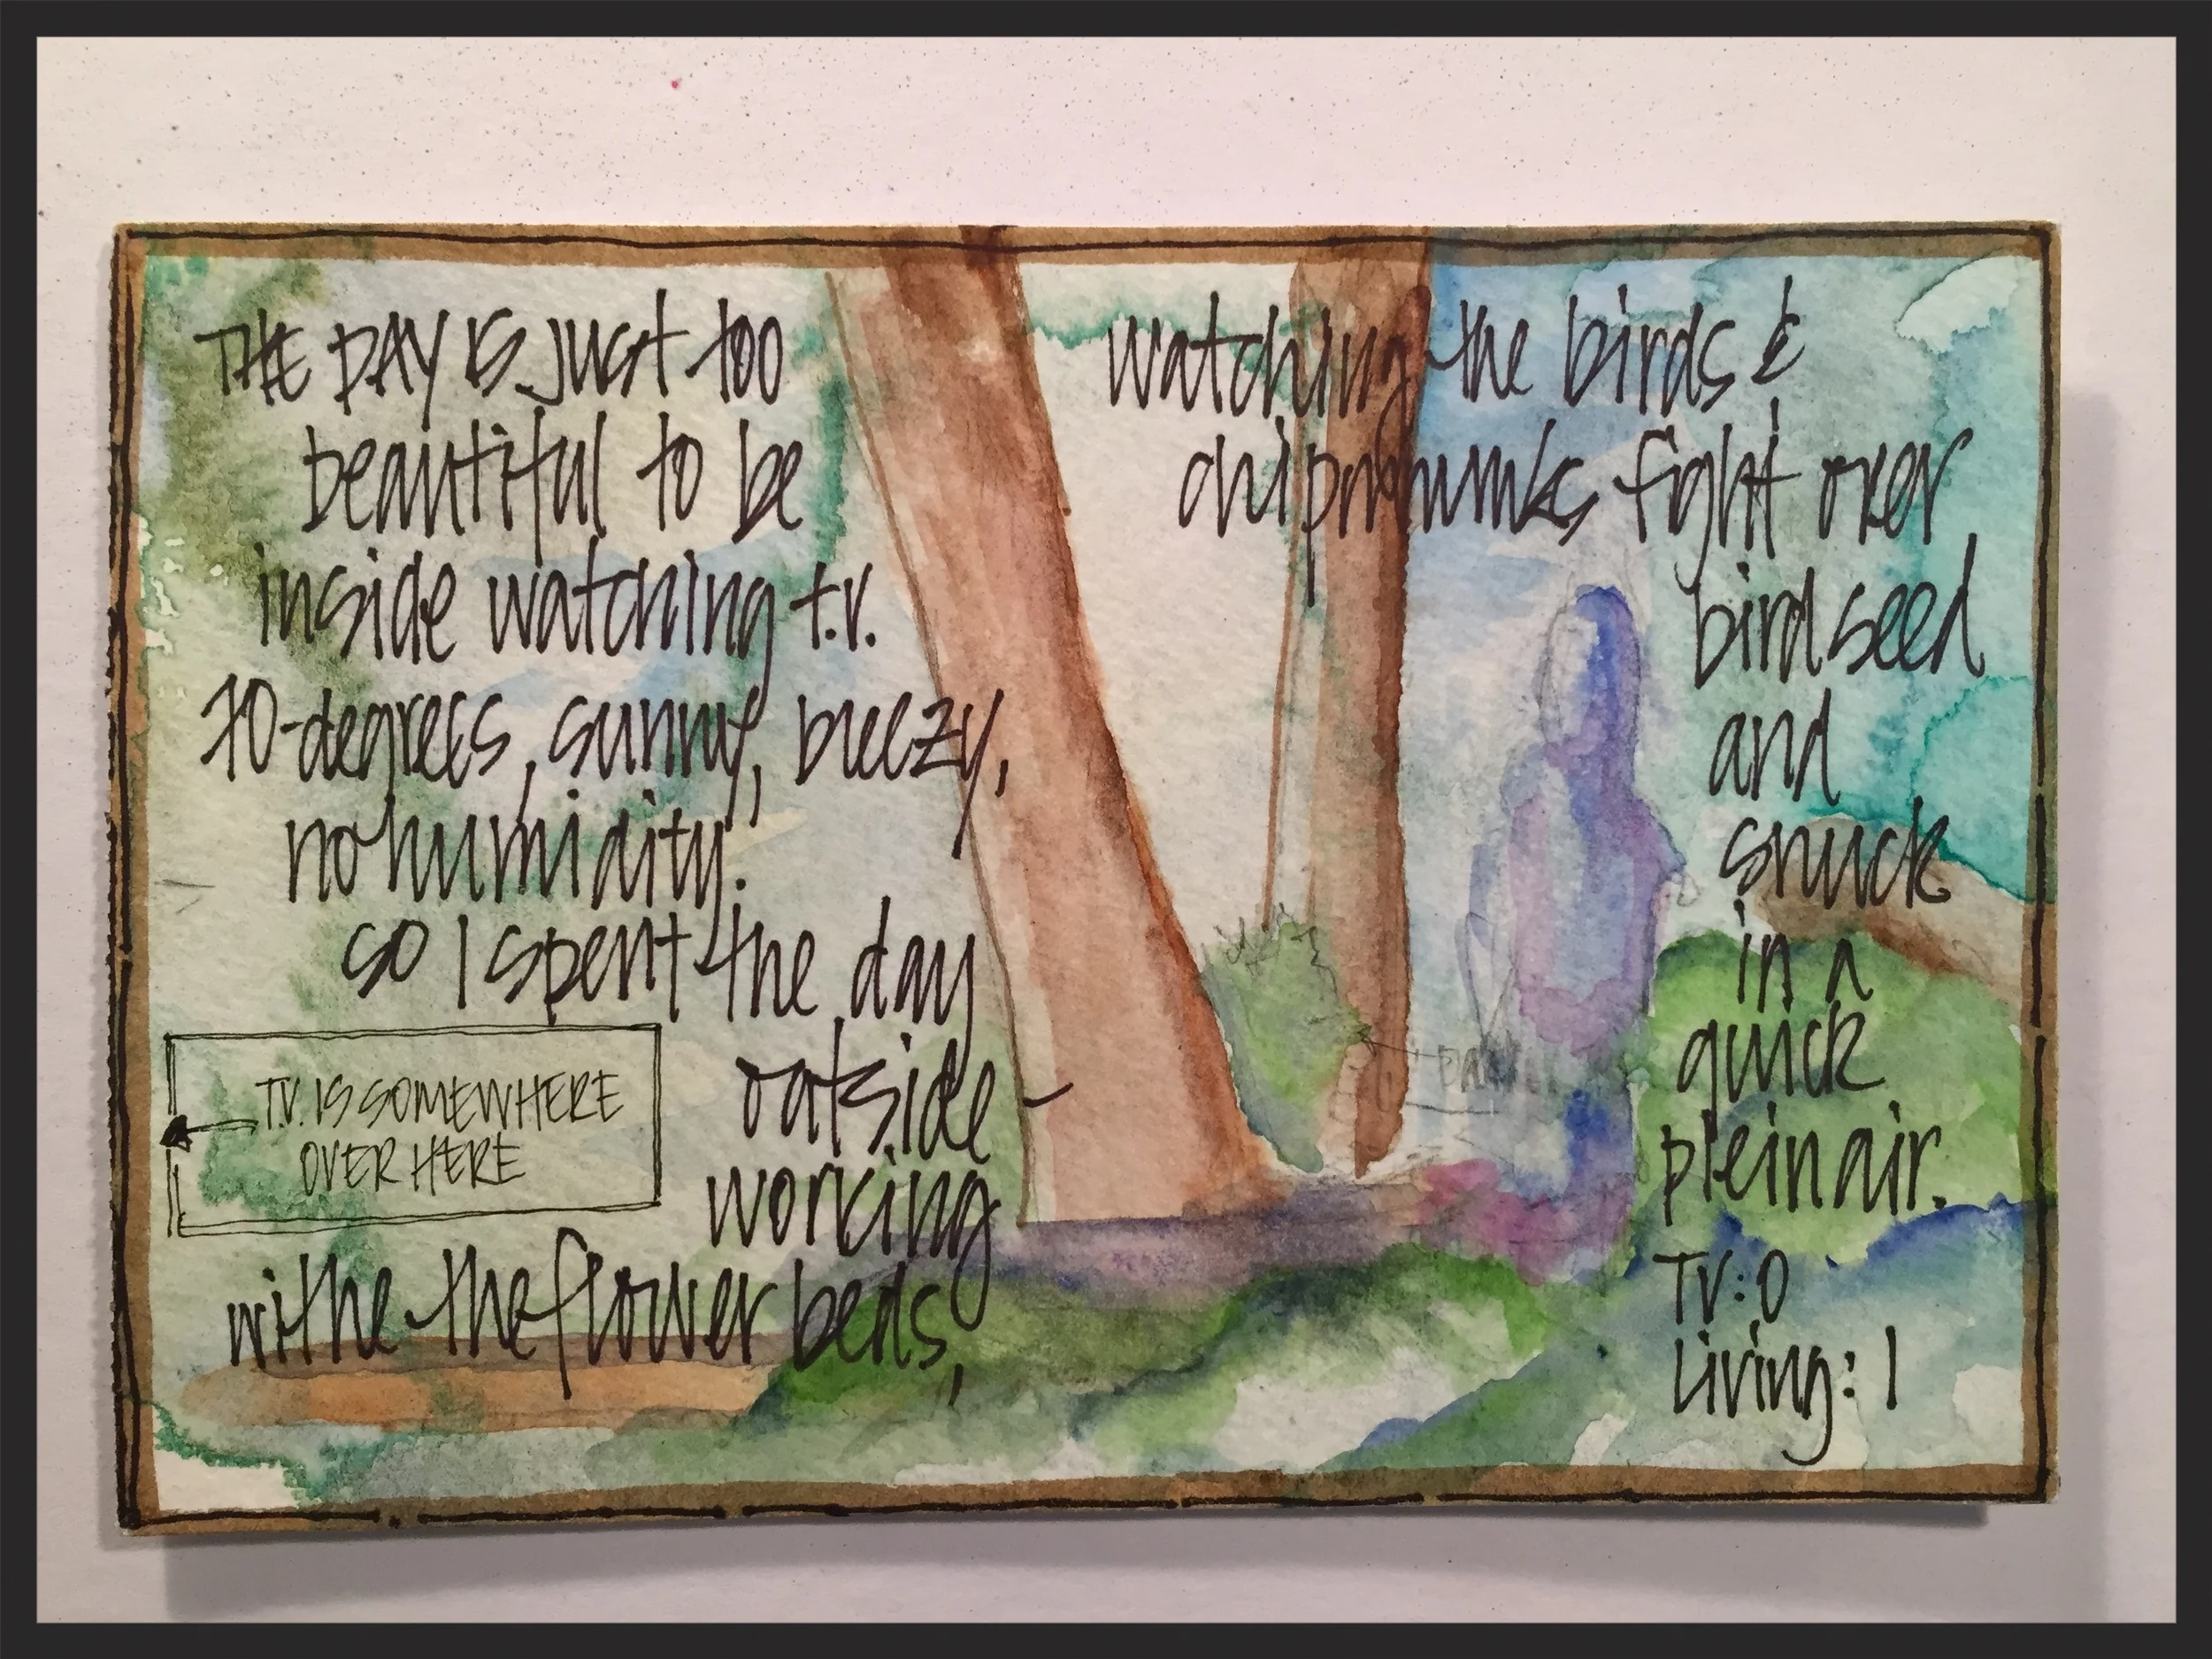 THE DAY IS JUST TOO
beautiful to be
inside watching t.v.
70-degrees, sunny, breezy,
no humidity.
so I spent the day
outside -
working
withe the flower beds,
T.V. IS SOMEWHERE
OVER HERE
watching the birds &
chipmhunks fight over
birdseed
and
snuck
in a
quick
plein air.
TV: 0
Living: 1